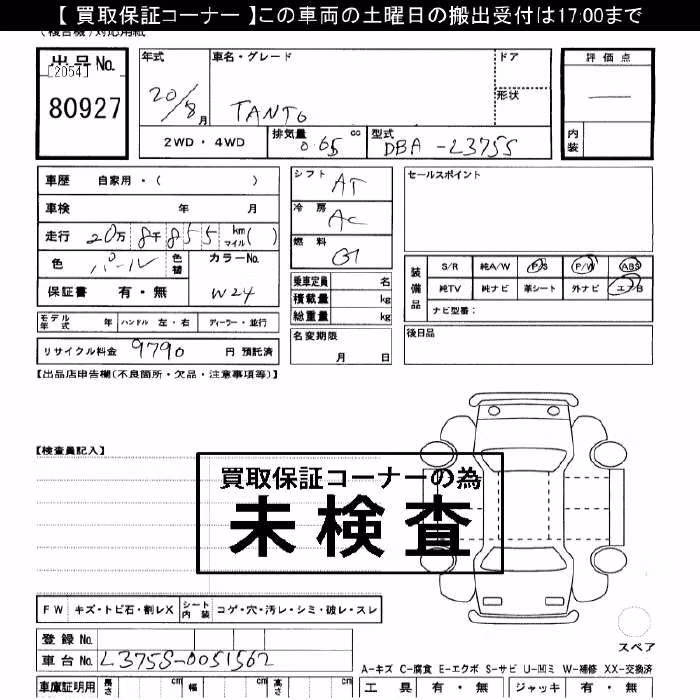 【 買取保証コーナー 】この車両の土曜日の搬出受付は17:00まで
出品No.
[2054]
80927
年式
20/8月
車名・グレード
TANTO
ドア
形状
2WD・4WD
排気量
0.65 cc
型式
DBA-L375S
評価点
―
内装
車歴 自家用・( )
車検 年 月
走行 20万 8千 855 km マイル( )
色 パール
色替
カラーNo.
W24
保証書 有・無
モデル年式 年 ハンドル 左・右 ディーラー・並行
リサイクル料金 9790 円 預託済
シフト AT
冷房 AC
燃料 G
乗車定員 名
積載量 kg
総重量 kg
名変期限
月 日
セールスポイント
装備品
S/R 純A/W P/S P/W ABS
純TV 純ナビ 革シート 外ナビ エアB
ナビ型番:
後日品
【出品店申告欄(不良箇所・欠品・注意事項等)】
【検査員記入】
買取保証コーナーの為
未検査
FW キズ・トビ石・割レX シート内装 コゲ・穴・汚レ・シミ・破レ・スレ
登録No.
車台No. L375S-0051562
車庫証明用 長さ cm 幅 cm 高さ cm
スペア
A-キズ C-腐食 E-エクボ S-サビ U-凹ミ W-補修 XX-交換済
工具 有・無 ジャッキ 有・無